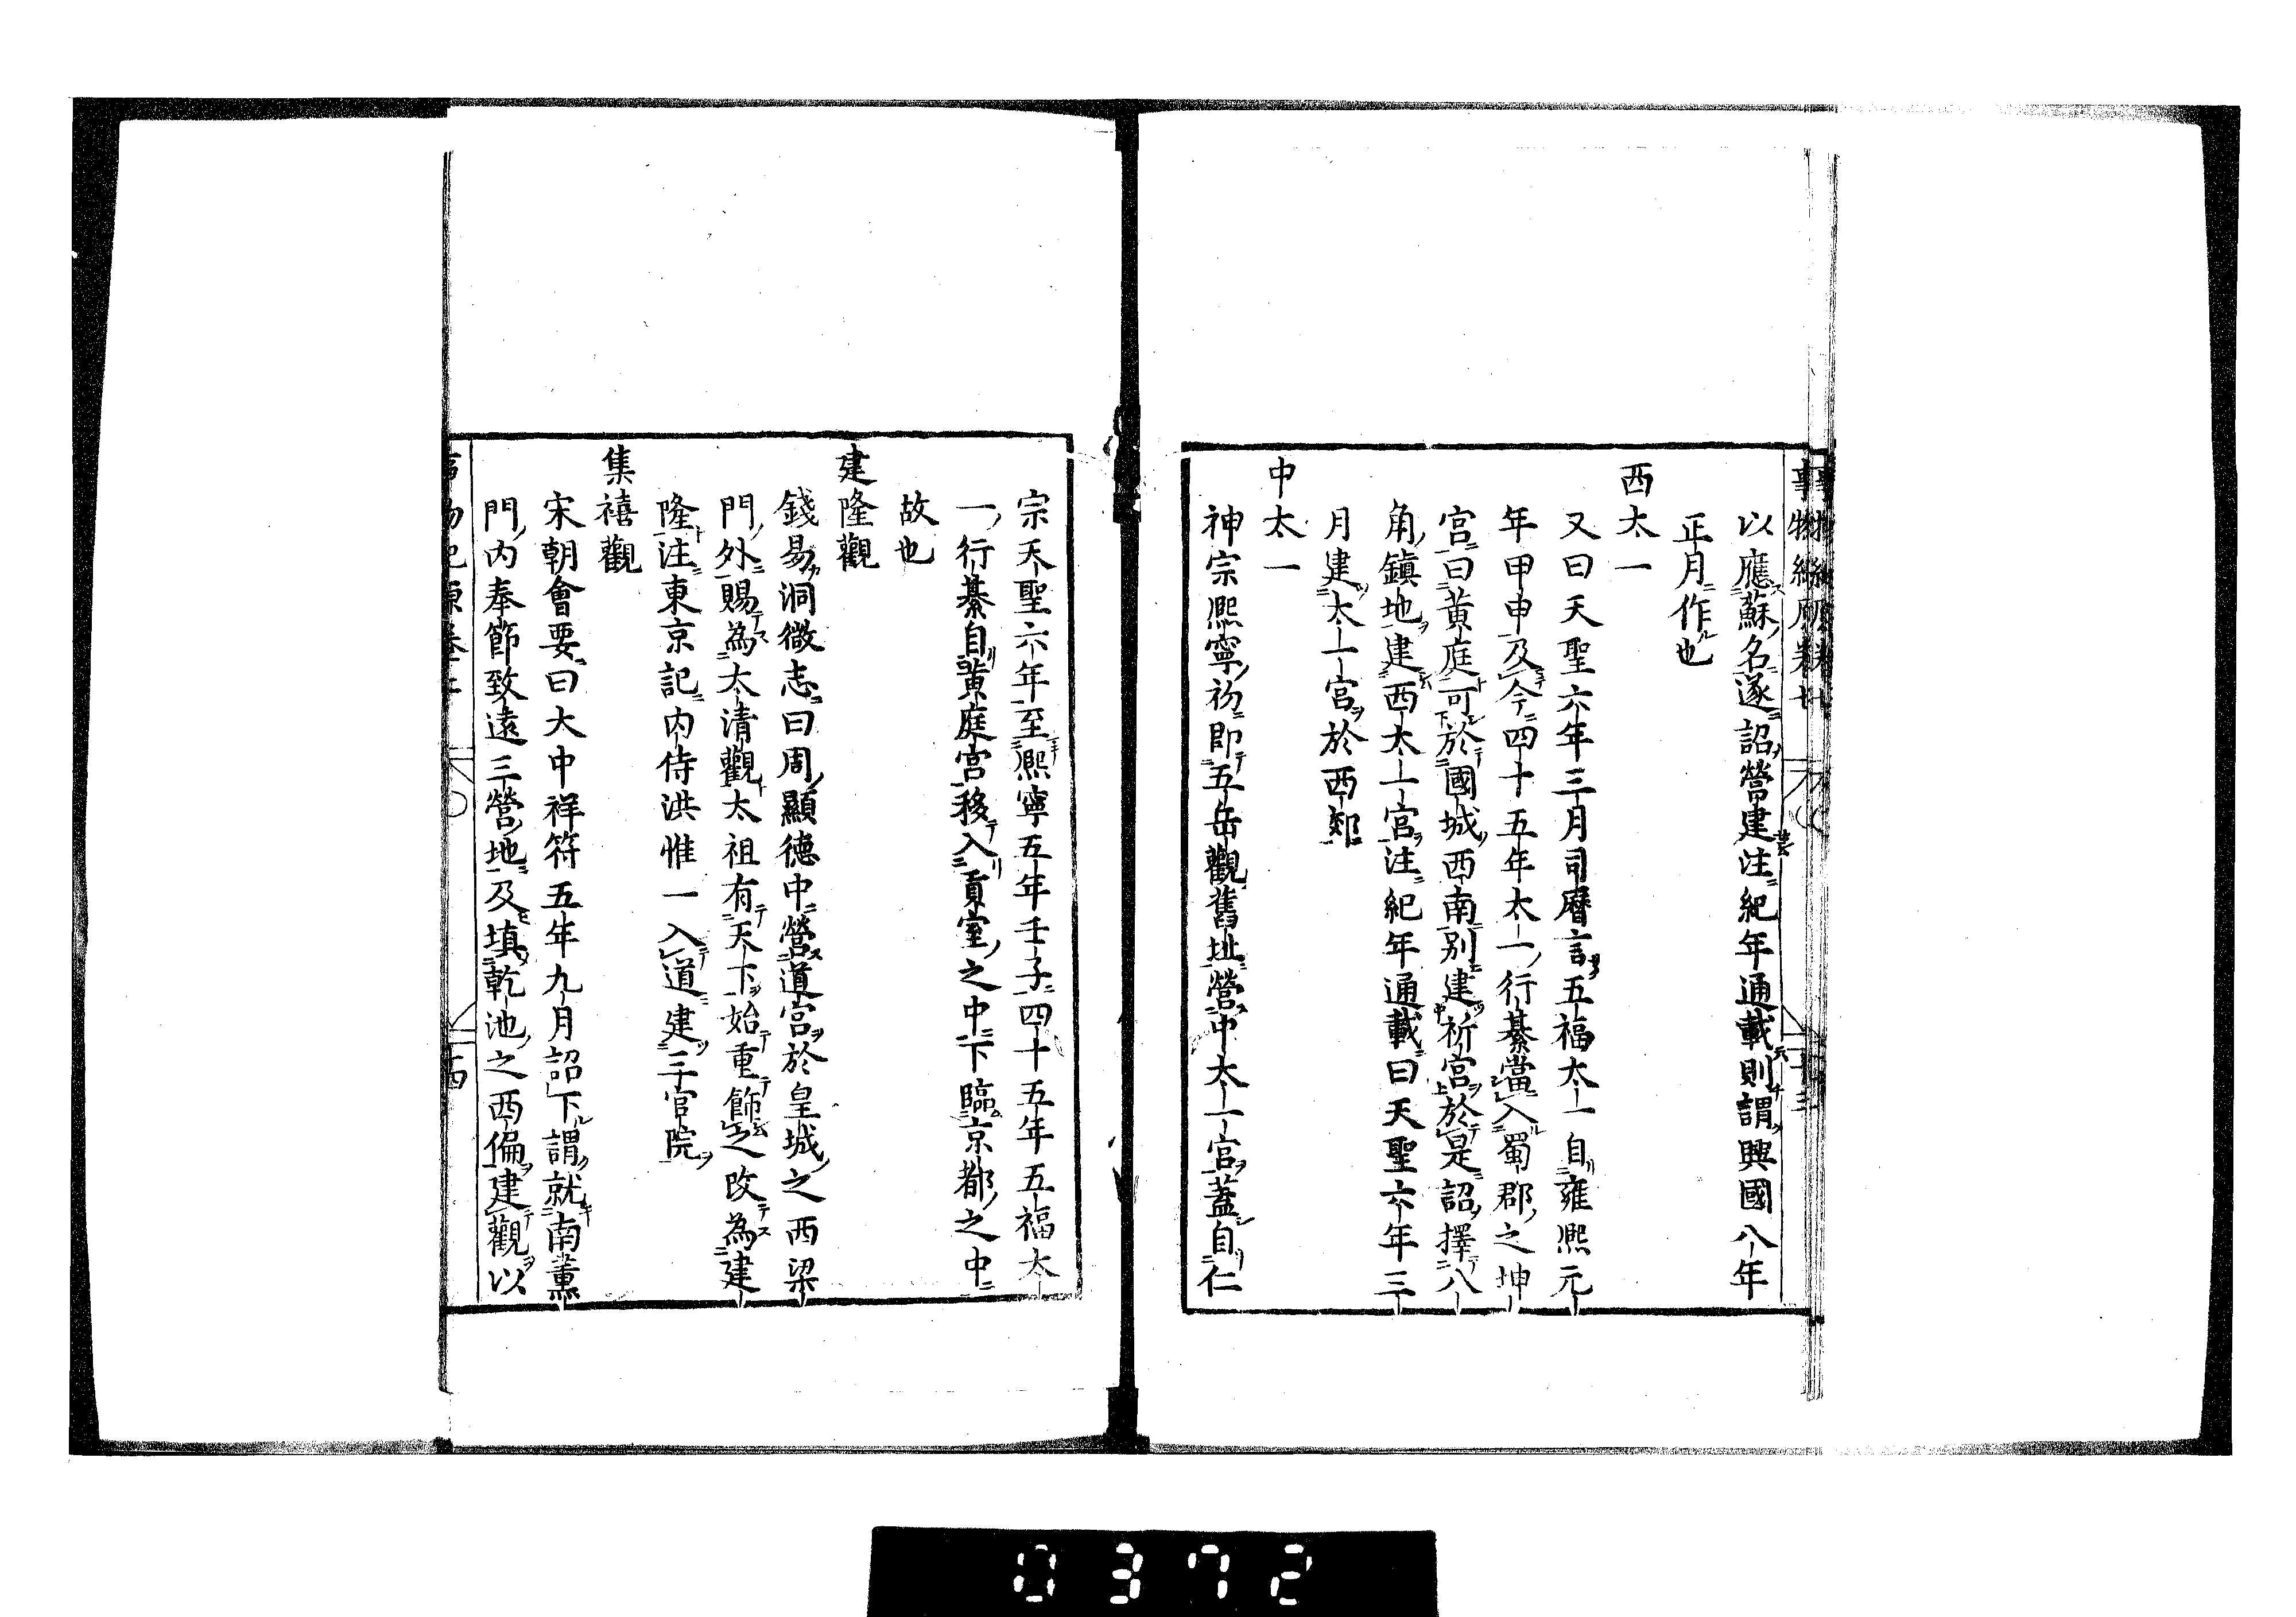 以應蘇名遂詔營建注紀年通載則謂興國八年
正月作也
西太一
又曰天聖六年三月司曆言五福太一自雍熙元
年甲申及今四十五年太一行綦當入蜀郡之坤
宮曰黃庭可於國城西南別建祈宮於是詔擇八
角鎮地建西太一宮注紀年通載曰天聖六年三
月建太一宮於西郊
中太一
神宗熙寧初即五岳觀舊址營中太一宮蓋自仁
宗天聖六年至熙寧五年壬子四十五年五福太
一行綦自黃庭宮移入真室之中下臨京都之中
故也
建隆觀
錢易洞微志曰周顯德中營道宮於皇城之西梁
門外賜為太清觀太祖有天下始重飾之改為建
隆注東京記內侍洪惟一入道建三官院
集禧觀
宋朝會要曰大中祥符五年九月詔下謂就南薰
門內奉節致遠三營地及填乾池之西偏建觀以
0372